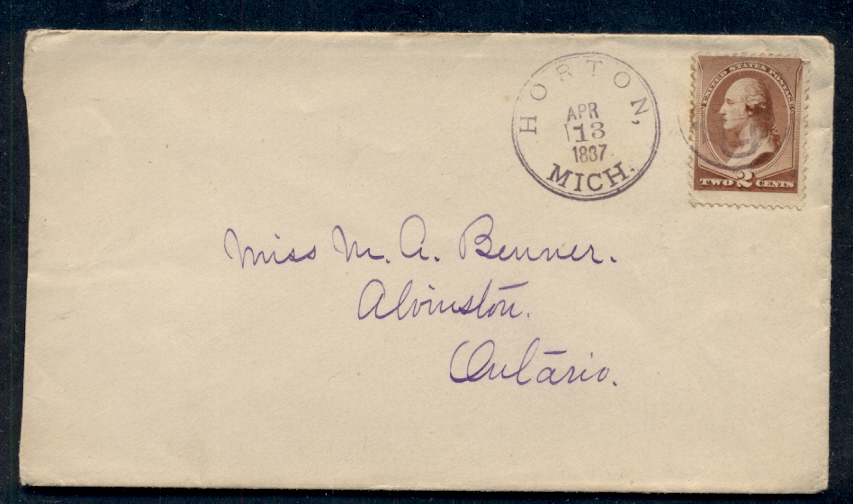 HORTON,
APR
13
1887
MICH.
UNITED STATES POSTAGE
TWO 2 CENTS
Miss M. A. Benner.
Alvinston.
Ontario.